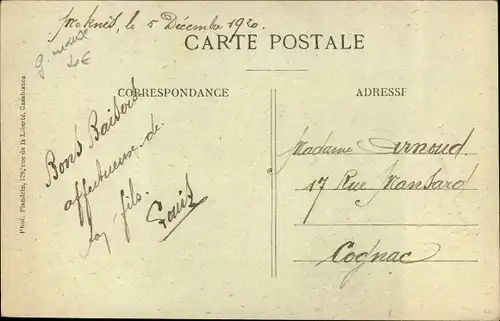 Meknès, le 5 Décembre 1920.
CARTE POSTALE
CORRESPONDANCE
ADRESSE
Bons Baisers
affectueux de
ton fils.
Louis
Madame Arnoud
17 Rue Mansard
Cognac
Phot. Flandrin, rue de la Liberté, Casablanca